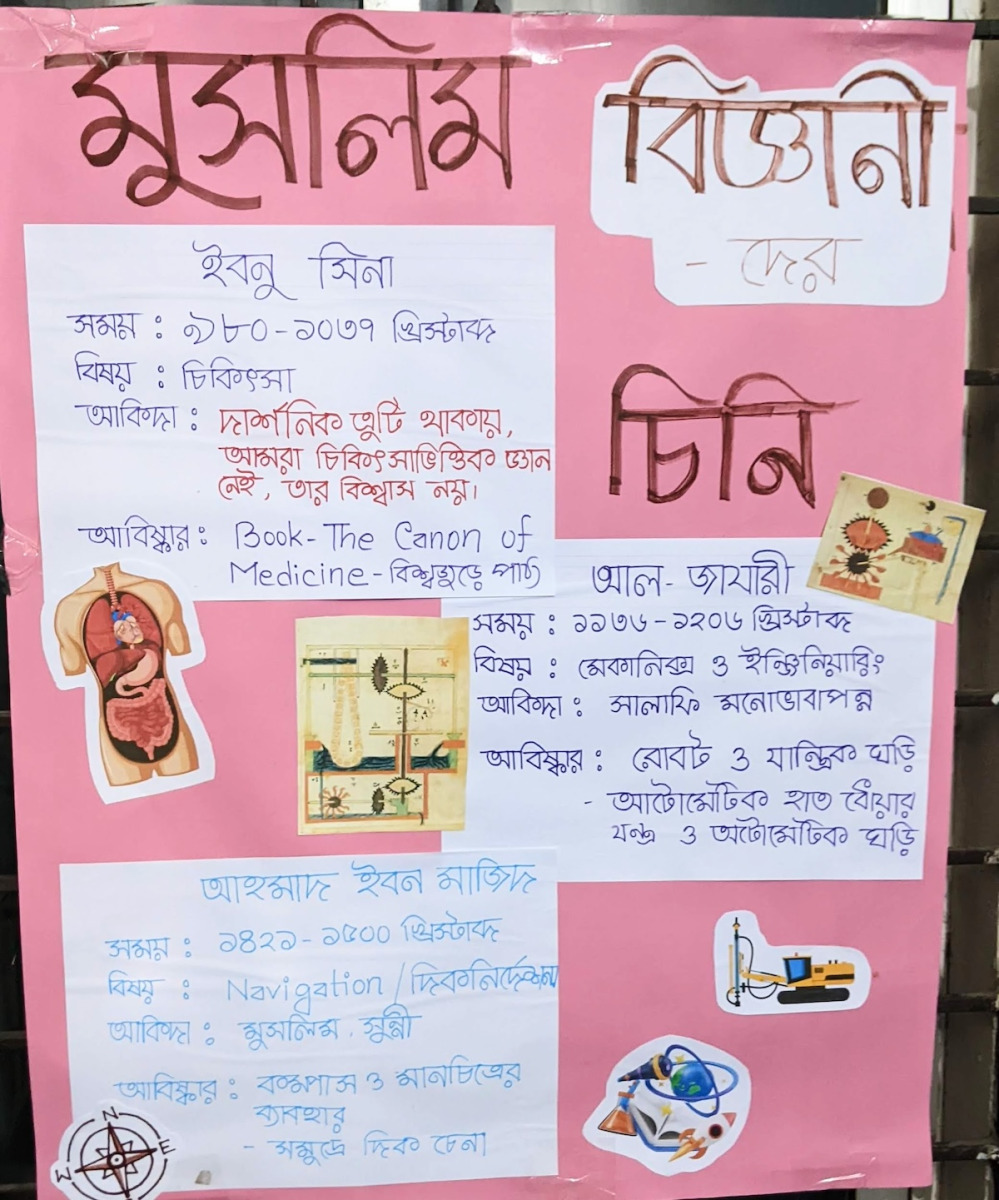 মুসলিম বিজ্ঞানী
- দের
চিনি
ইবনু সিনা
সময় : ৯৮০-১০৩৭ খ্রিস্টাব্দ
বিষয় : চিকিৎসা
আকিদা : দার্শনিক ত্রুটি থাকায়,
আমরা চিকিৎসাভিত্তিক জ্ঞান
নেই, তার বিশ্বাস নয়।
আবিষ্কার : Book-The Canon of
Medicine-বিশ্বজুড়ে পাঠ্য
আল-জাযারী
সময় : ১১৩৬-১২০৬ খ্রিস্টাব্দ
বিষয় : মেকানিক্স ও ইঞ্জিনিয়ারিং
আকিদা : সালাফি মনোভাবাপন্ন
আবিষ্কার : রোবট ও যান্ত্রিক ঘড়ি
- আটোমেটিক হাত ধোঁয়ার
যন্ত্র ও অটোমেটিক ঘড়ি
আহমাদ ইবন মাজিদ
সময় : ১৪২১-১৫০০ খ্রিস্টাব্দ
বিষয় : Navigation/দিকনির্দেশনা
আকিদা : মুসলিম, সুন্নী
আবিষ্কার : কম্পাস ও মানচিত্রের
ব্যাবহার
- সমুদ্রে দিক চেনা
N
W E